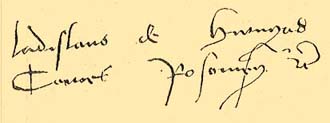 Ladislaus de Hwnyad
Comes Posonien̄ etc̄